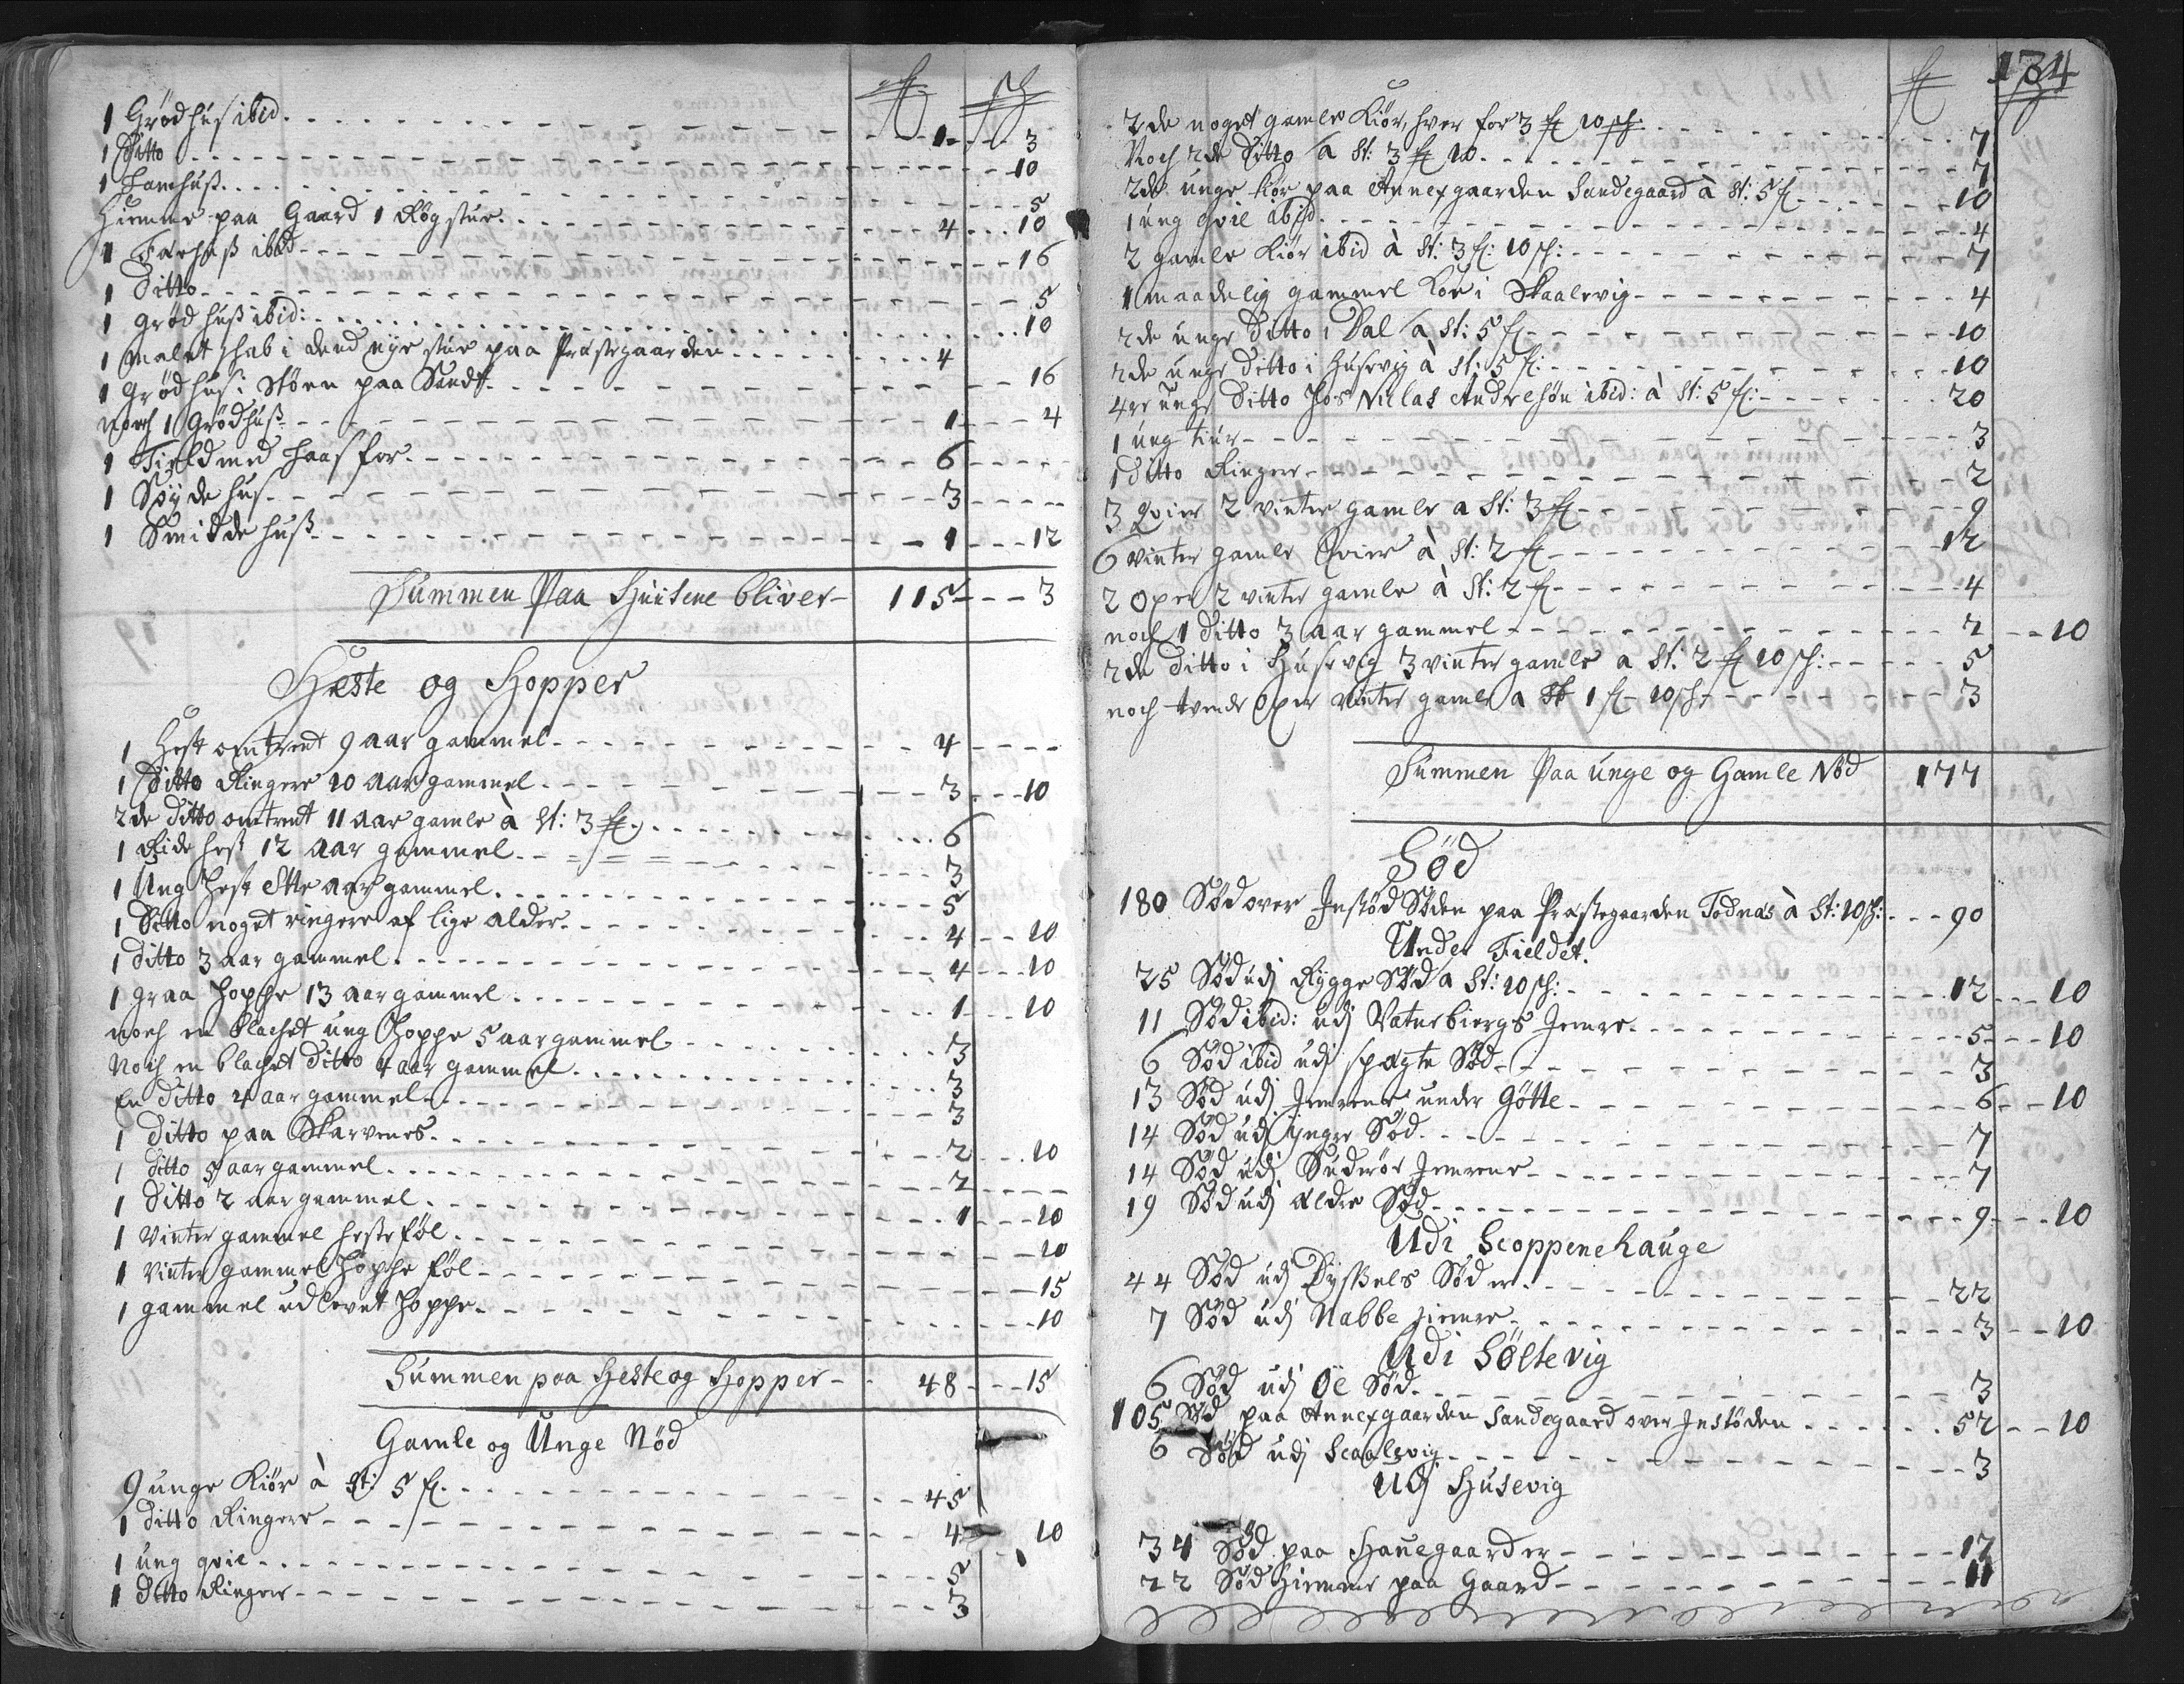 fl sk
1 Grødhus ibid. 1 3
1 Ditto 10
1 Lamhuß. 5
Hiemme paa Gaard 1 Røgstue. 4 10
1 Faarhuß ibid 16
1 Ditto 5
1 Grødhuß ibid: 10
1 malet skab i dend nye stue paa Præstegaarden 4
1 Grødhus i paa Sandt. 16
noch 1 Grødhuß 1 4
1 Field med 6
1 Søydehus 3
1 Smiddehuß 1 12
Summen Paa Huusene bliver 115 3
Heste og Hopper
1 Hest omtrent 9 aar gammel 4
1 Ditto Ringere 10 aar gammel 3 10
2de Ditto omtrent 11 aar gamle à St: 3 fl. 6
1 Ride hest 12 aar gammel 3
1 Ung Hest otte aar gammel 5
1 Ditto noget ringere af lige alder 4 10
1 ditto 3 aar gammel 4 10
1 graa Hoppe 13 aar gammel 1 10
noch en blachet ung Hoppe 5 aar gammel 3
Noch en blachet Ditto 4 aar gammel 3
En Ditto 4 aar gammel 3
1 Ditto paa Skarvenes 2 10
1 ditto 5 aar gammel 2
1 Ditto 2 aar gammel 1 10
1 Vinter gammel heste føl 10
1 Vinter gammel Hoppe føl 15
1 gammel udlevet Hoppe 10
Summen paa Heste og Hopper 48 15
Gamle og Unge Nød
9 unge Kiør à St: 5 fl. 45
1 ditto Ringere 4 10
1 ung qvie 5
1 Ditto Ringere 3
fl 134
2de noget gamle Kiør, hver for 3 fl 10 sk: 7
Noch 2de Ditto a St: 3 fl 10 7
2de unge kiør paa Annexgaarden Sandegaard à St: 5 fl 10
1 ung qvie ibid 4
2 gamle Kiør ibid à St: 3 fl: 10 sk: 7
1 maadelig gammel Koe i Skaalevig 4
2de unge Ditto i Dal a St: 5 fl 10
2de unge Ditto i Husevig à St: 5 fl: 10
4re unge Ditto Hos Niclas Andresøn ibid: à St: 5 fl: 20
1 ung tiur 3
1 ditto Ringere 2
3 Qvier 2 vinter gamle a St: 3 fl 9
6 vinter gamle Qvier à St: 2 fl 12
2 Oxer 2 vinter gamle à St: 2 fl 4
noch 1 Ditto 3 aar gammel 2 10
2de Ditto i Husevig 3 vinter gamle a St: 2 fl 10 sk: 5
noch tvende Oxer vinter gamle a St 1 fl 10 sk 3
Summen Paa unge og Gamle Nød 177
Sød
180 Sød over Instød Søden paa Præstegaarden Todnæs à St: 10 sk: 90
Under Fieldet.
25 Sød udj Rygge Sød a St: 10 sk: 12 10
11 Sød ibid: udj Vatnebiergs Jemre 5 10
6 Sød ibid udj spagte Sød 3
13 Sød udj Jemrene under Gøtte 6 10
14 Sød udj Yngre Sød 7
14 Sød udj Suderør Jemrene 7
19 Sød udj Ældre Sød 9 10
Udi Scoppenehauge
44 Sød udj Dyssels Søder 22
7 Sød udj Nabbe Jiemre 3 10
Udi Søltevig
6 Sød udj Øe Sød 3
105 Sød paa Annexgaarden Sandegaard over Instøden 52 10
6 Sød udj Scaalevig 3
Udj Husevig
34 Sød paa Hauegaarder 17
22 Sød Hiemme paa Gaard 11